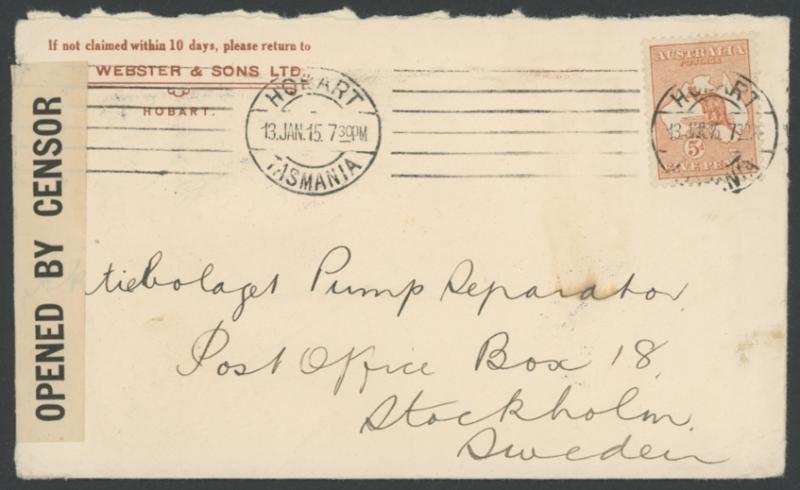 If not claimed within 10 days, please return to
WEBSTER & SONS LTD.
HOBART.
OPENED BY CENSOR
HOBART
13.JAN.15. 7 30PM
TASMANIA
AUSTRALIA
POSTAGE
5D
FIVE PENCE
HOBART
tiebolaget Pump Separator
Post Office Box 18.
Stockholm.
Sweden